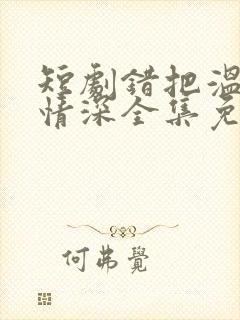 短劇錯把溫
情深全集免
何弗覺